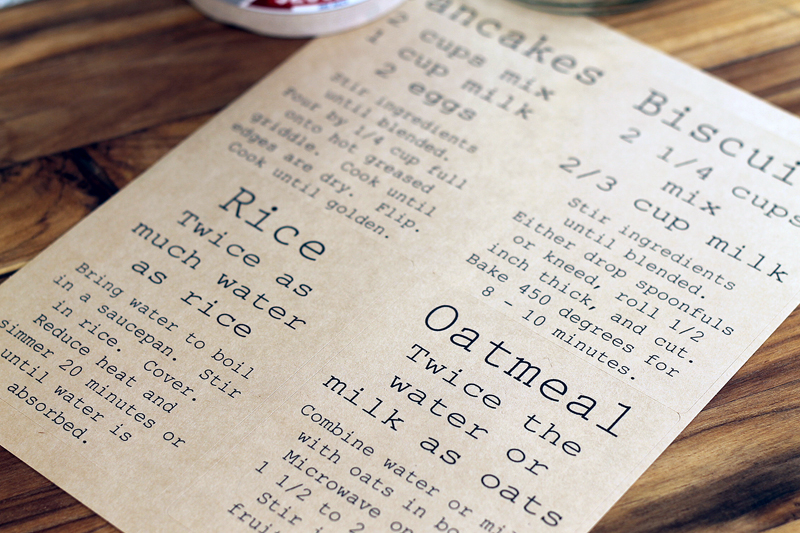 ancakes
2 cups mix
1 cup milk
2 eggs
Stir ingredients
until blended.
Pour by 1/4 cup full
onto hot greased
griddle. Cook until
edges are dry. Flip.
Cook until golden.
Biscui
2 1/4 cups
mix
2/3 cup milk
Stir ingredients
until blended.
Either drop spoonfuls
or kneed, roll 1/2
inch thick, and cut.
Bake 450 degrees for
8 - 10 minutes.
Rice
Twice as
much water
as rice
Bring water to boil
in a saucepan. Stir
in rice. Cover.
Reduce heat and
simmer 20 minutes or
until water is
absorbed.
Oatmeal
Twice the
water or
milk as oats
Combine water or mil
with oats in bo
Microwave on
1 1/2 to 2
Stir i
frui